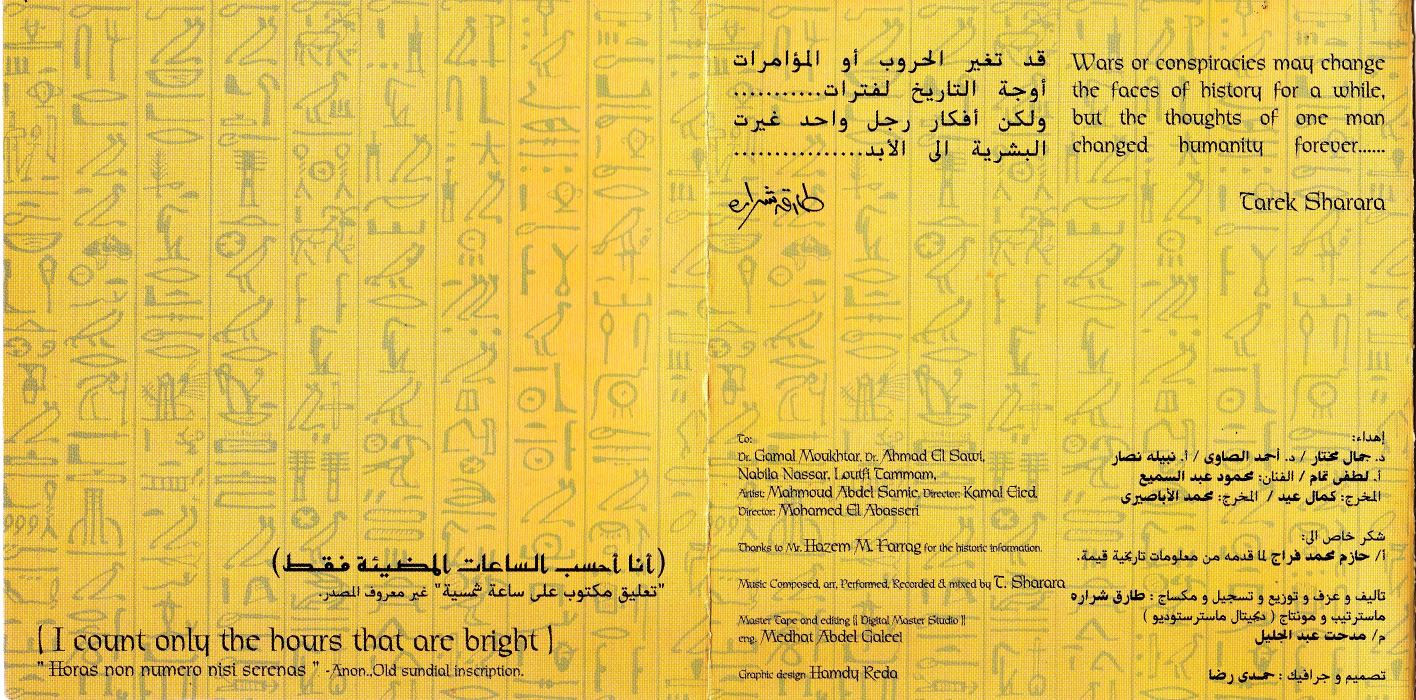 (أنا أحسب الساعات المضيئة فقط)
"تعليق مكتوب على ساعة شمسية" غير معروف المصدر.
[ I count only the hours that are bright ]
" Horas non numero nisi serenas " -Anon.,Old sundial inscription.
قد تغير الحروب أو المؤامرات
أوجة التاريخ لفترات...........
ولكن أفكار رجل واحد غيرت
البشرية الى الأبد................
طارق شراره
Wars or conspiracies may change
the faces of history for a while,
but the thoughts of one man
changed humanity forever......
Tarek Sharara
To:
Dr. Gamal Moukhtar, Dr. Ahmad El Sawi,
Nabila Nassar, Loutfi Tammam,
Artist: Mahmoud Abdel Samie, Director: Kamal Eied,
Director: Mohamed El Abasseri
Thanks to Mr. Hazem M. Farrag for the historic information.
Music Composed, arr, Performed, Recorded & mixed by T. Sharara
Master Tape and editing [[ Digital Master Studio ]]
eng. Medhat Abdel Galeel
Graphic design Hamdy Reda
إهداء:
د. جمال مختار / د. أحمد الصاوى / أ. نبيله نصار
أ. لطفى تمام / الفنان: محمود عبد السميع
المخرج: كمال عيد / المخرج: محمد الأباصيرى
شكر خاص الى:
أ/ حازم محمد فراج لما قدمه من معلومات تاريخية قيمة.
تأليف و عزف و توزيع و تسجيل و مكساج : طارق شراره
ماسترتيب و مونتاج ( ديجيتال ماسترستوديو )
م/ مدحت عبد الجليل
تصميم و جرافيك : حمدى رضا